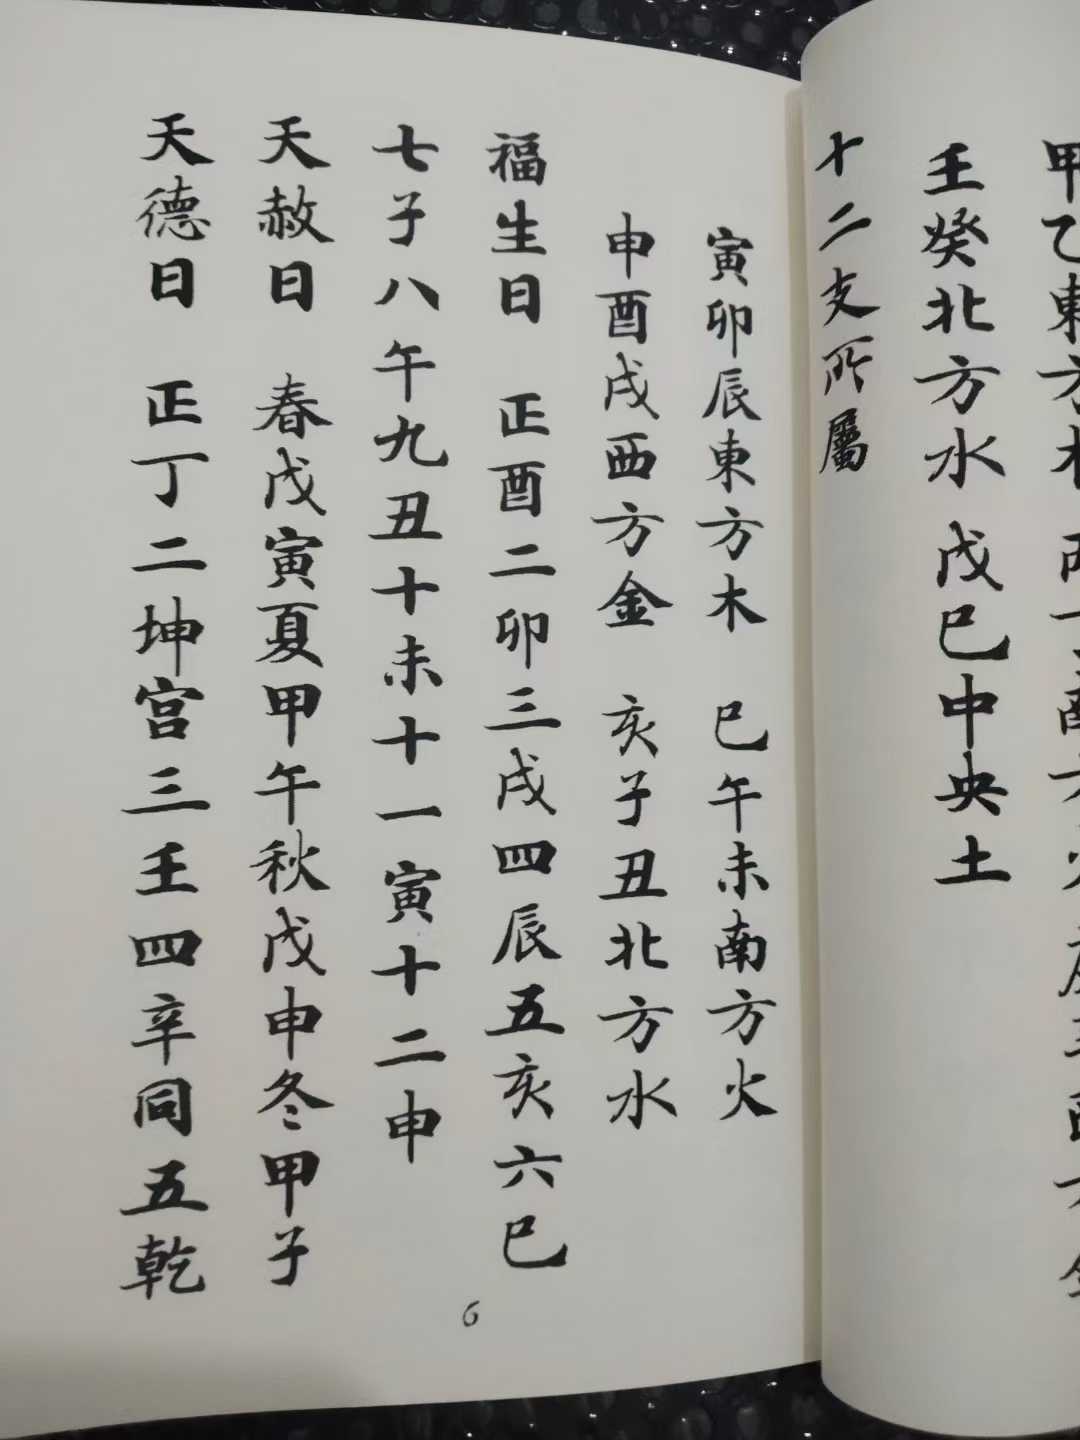 壬癸北方水 戊巳中央土
十二支所屬
寅卯辰東方木 巳午未南方火
申酉戌西方金 亥子丑北方水
福生日 正酉二卯三戌四辰五亥六巳
七子八午九丑十未十一寅十二申
天赦日 春戊寅夏甲午秋戊申冬甲子
天德日 正丁二坤宮三壬四辛同五乾
6